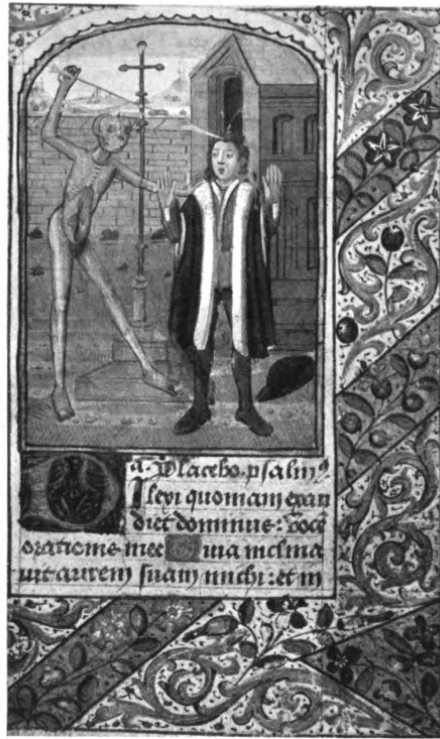 a. Placebo. psalmꝰ
ilexi quoniam exau
diet dominus: vocē
orationis mee Quia inclina
uit aurem suam michi: et in